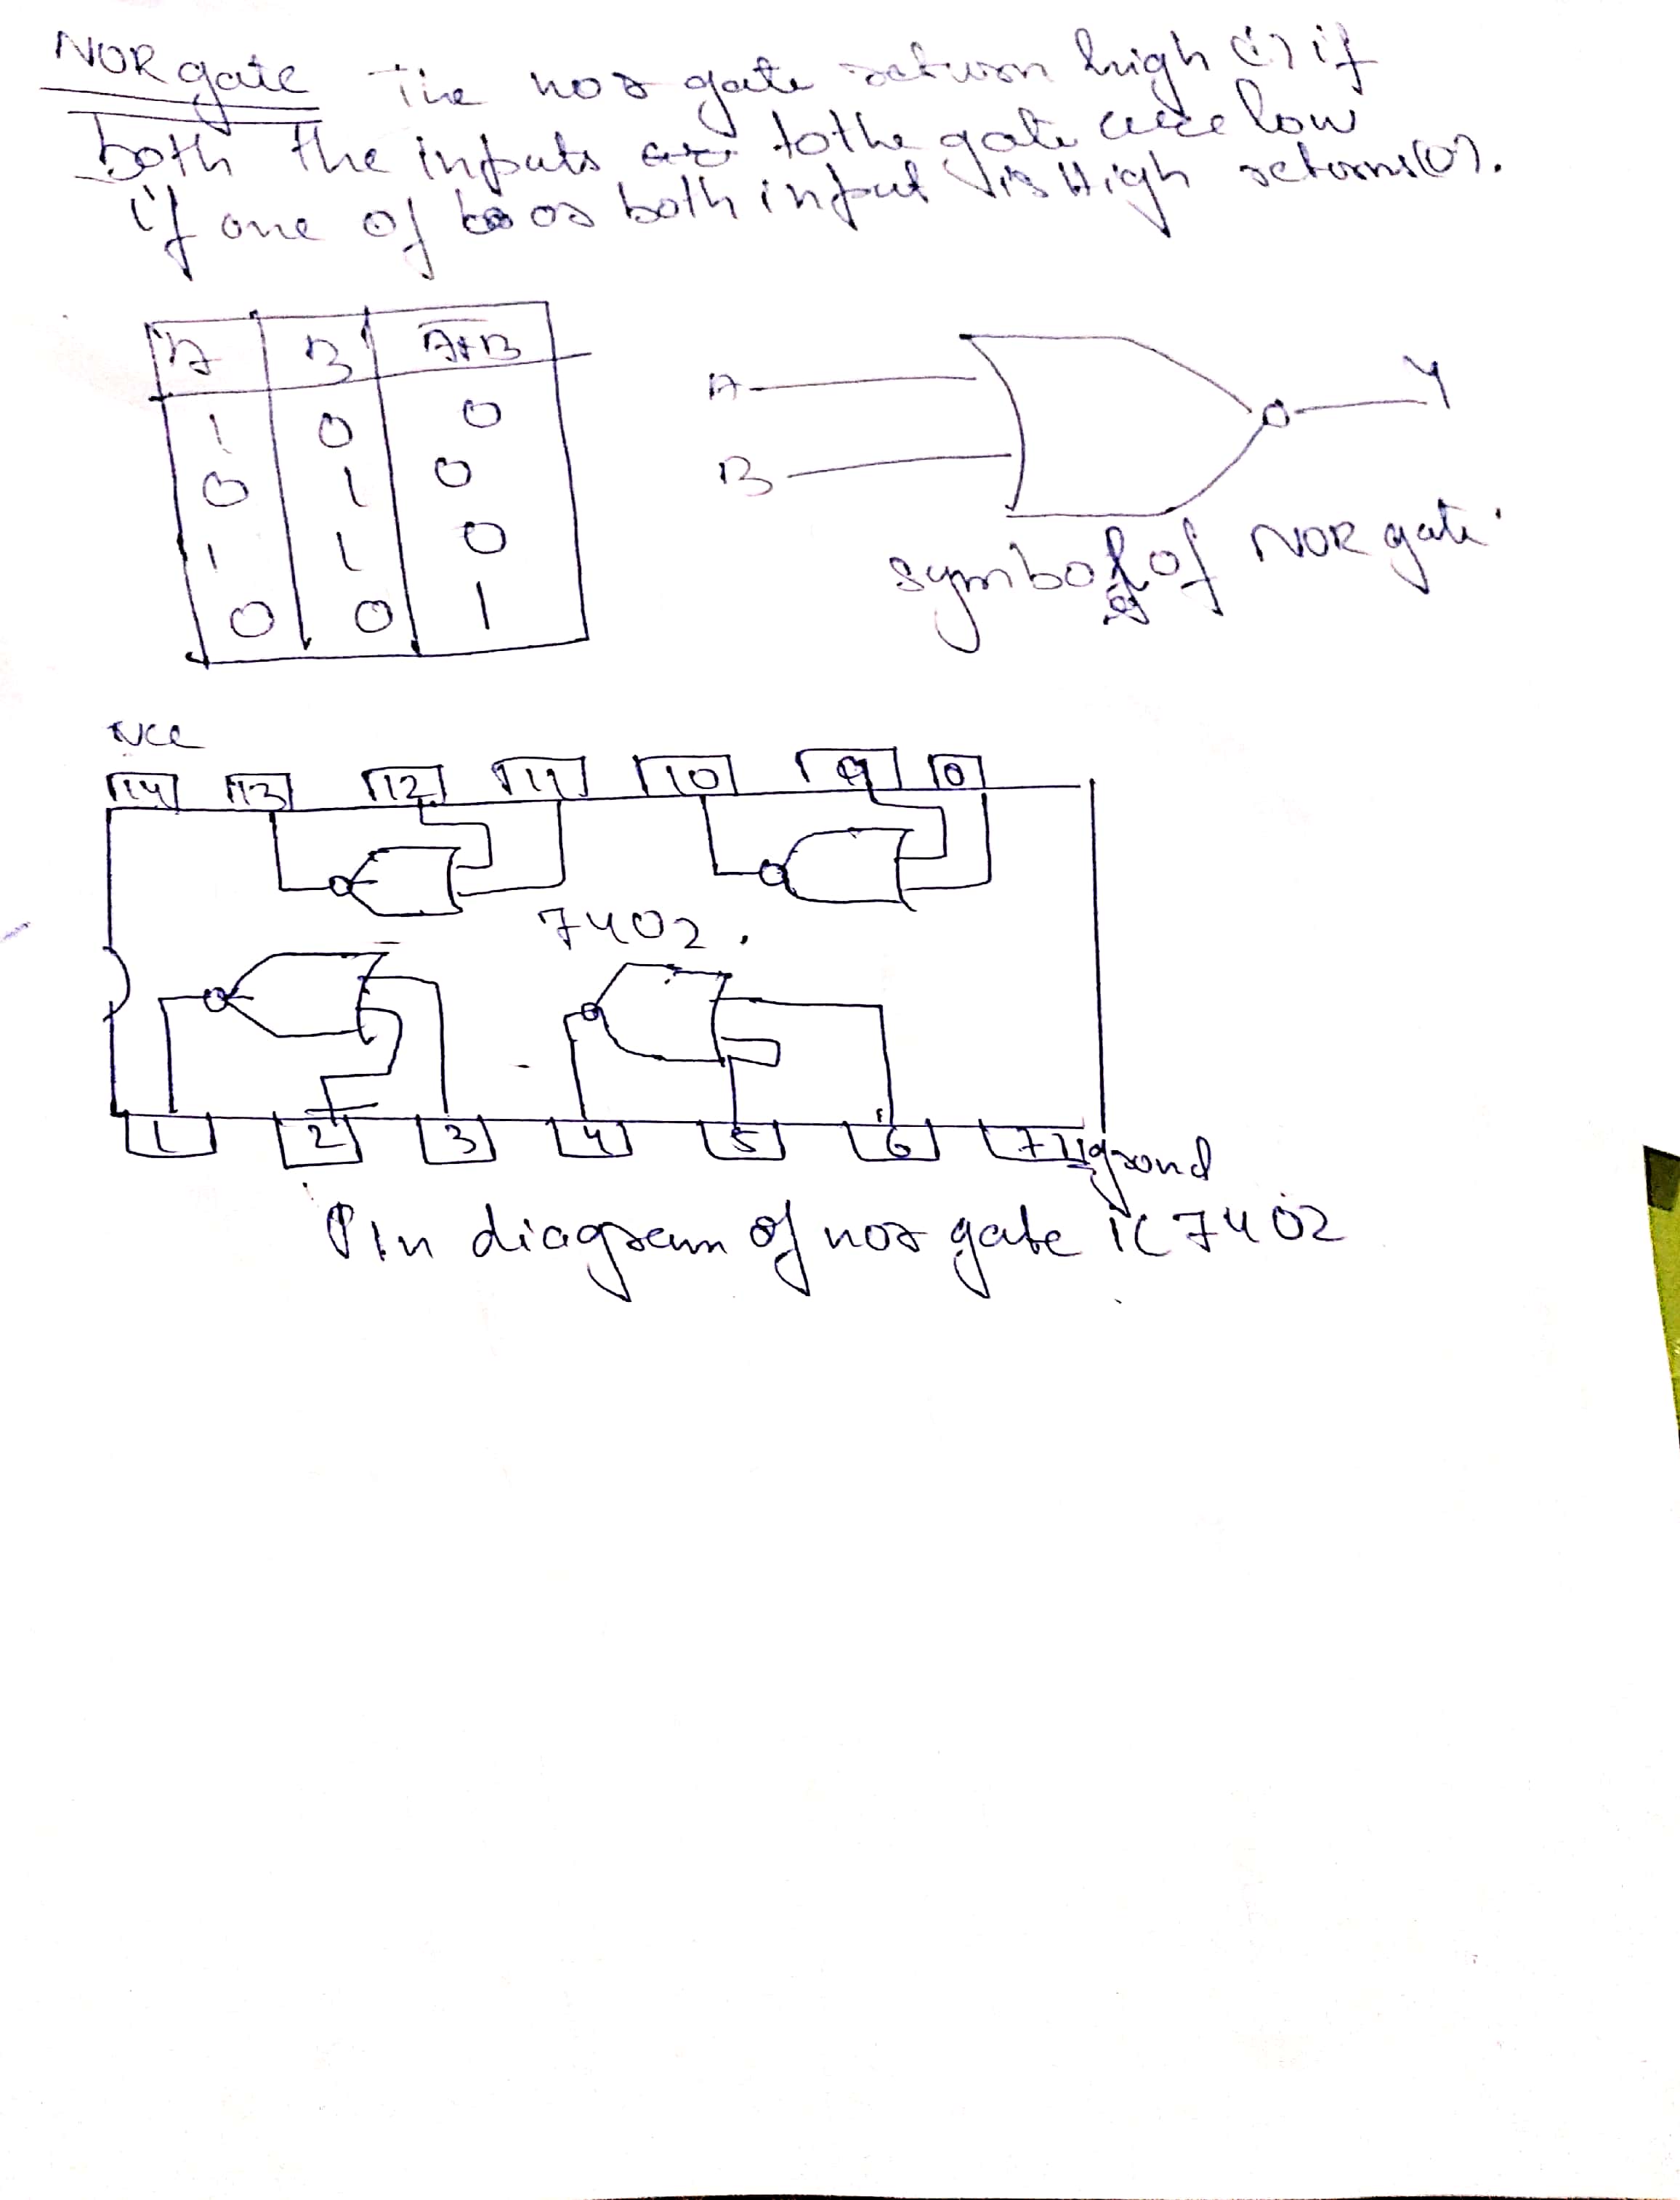 NOR gate The nor gate return high (1) if
both the inputs to the gate are low
if one of or both input is High returns (0).
A B A+B
1 0 0
0 1 0
1 1 0
0 0 1
A
B
Y
symbol of NOR gate
Vcc
14 13 12 11 10 9 8
7402.
1 2 3 4 5 6 7 grond
Pin diagram of nor gate IC 7402